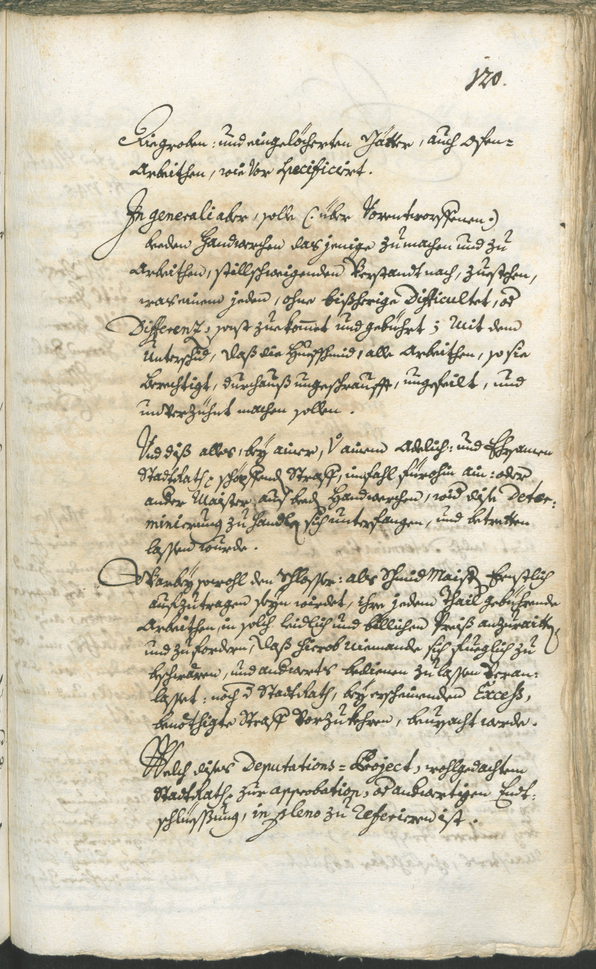 120.
Riegroben: und eingelöcherten Gätter, auch Ofen=
Arbeithen, wie vor specificirt.
In generali aber, solle (: über Vorentworffenen:)
beeden Handwerchen das jenige zu machen und zu
Arbeithen, stillschweigenden Verstandt nach, zuestehen,
was einem jeden, ohne bißherige Difficultet, od
Differenz, sonst zuekommet und gebührt; Mit dem
Unterschid, daß die Huefschmid, alle Arbeithen, so sie
berechtigt, durchauß ungeschraufft, ungefeilt, und
unverzühnt machen sollen.
Und diß alles, bey ainer, v ainem Adelich: und Ehrsamen
Stadt Rath schöpfend Straff, imfahl fürohin ain: oder
ander Maister auß beed Handwerchen, wid dise Deter=
minierung zu handlen sich unterfangen, und betretten
lassen wurde.
Wobey sowohl den Schlosser: als Schmid Maistern Ernstlich
aufzutragen seyn würdet, ihre jedem Thail gebührende
Arbeithen, in solch leidlich und billichen Preiß anzuraitten
und zufordern, daß hierob niemande sich fueglich zu
beschwären, und anderwerts bedienen zu lassen veran=
lasset: noch d Stadt Rath, bey erscheinenden Excess,
benöthigte Straff vorzukehren, beursacht werde.
Welch dises Deputations=Project, wohlgedachtem
Stadt Rath, zur approbation, od anderwertigen Ent=
schliessung, in pleno zu referieren ist.